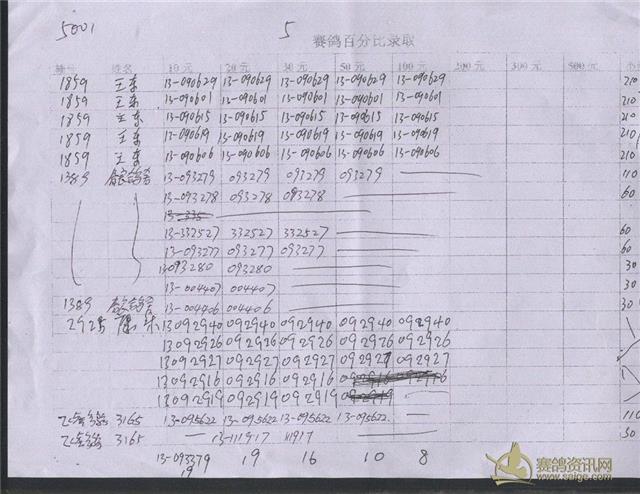 5001 5 赛鸽百分比录取
棚号 姓名 10元 20元 30元 50元 100元 200元 300元 500元
1859 王东 13-090629 13-090629 13-090629 13-090629 13-090629 210
1859 王东 13-090601 13-090601 13-090601 13-090601 13-090601 210
1859 王东 13-090615 13-090615 13-090615 13-090615 13-090615 210
1859 王东 13-090619 13-090619 13-090619 13-090619 13-090619 210
1859 王东 13-090606 13-090606 13-090606 13-090606 13-090606 210
1389 13-093279 093279 093279 093279 110
13-093278 093278 093278 60
13-335
13-332527 332527 332527 60
13-093277 093277 093277 60
13093280 093280 30
13-004407 004407 30
1389 13-004406 004406 30
2925 13092940 092940 092940 092940 092940
13092926 092926 092926 092926 092926
13092927 092927 092927 092927 092927
13092916 092916 092916 092916
13092919 092919 092919
3165 13-095622 13-095622 13-095622 13-095622 110
3165 13-111917 111917 50
13-093379 19 16 10 8
19
赛鸽资讯网
www.saige.com